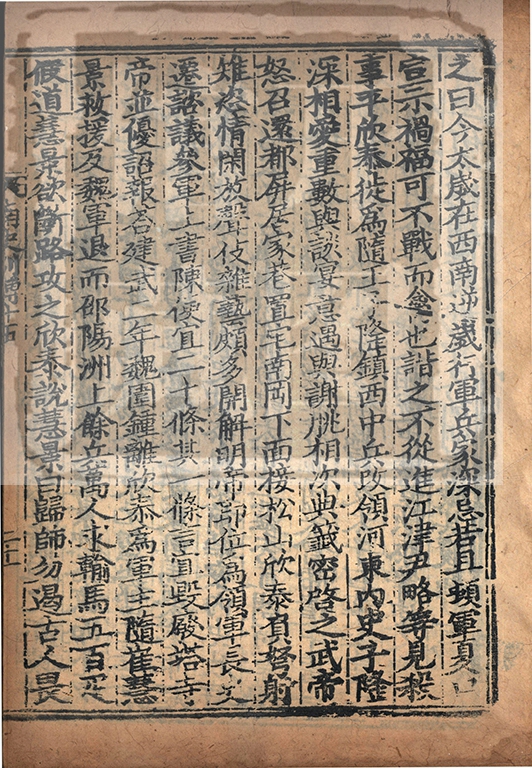 之曰今太歲在西南逆歲行軍兵家深忌若且頓軍夏口
宣示禍福可不戰而禽也諧之不從進江津尹略等見殺
事平欣泰徙為隨王子隆鎮西中兵改領河東內史子隆
深相愛重數與談宴意遇與謝朓相次典籤密啓之武帝
怒召還都屏居家巷置宅南岡下面接松山欣泰負弩射
雉恣情閑放聲伎雜藝頗多開解明帝即位為領軍長史
遷諮議參軍上書陳便宜二十條其一條言宜毀廢塔寺
帝並優詔報答建武二年魏圍鍾離欣泰為軍主隨崔慧
景救援及魏軍退而邵陽洲上餘兵萬人求輸馬五百疋
假道慧景欲斷路攻之欣泰說慧景曰歸師勿遏古人畏